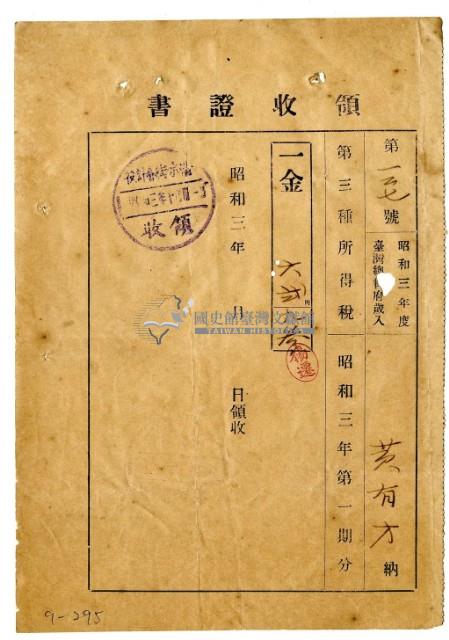 領收證書
第一七號
昭和三年度
臺灣總督府歲入
黃有方納
第三種所得稅
昭和三年第一期分
一金
昭和三年 月 日領收
領收
國史館臺灣文獻館
TAIWAN HISTORICA
9-295